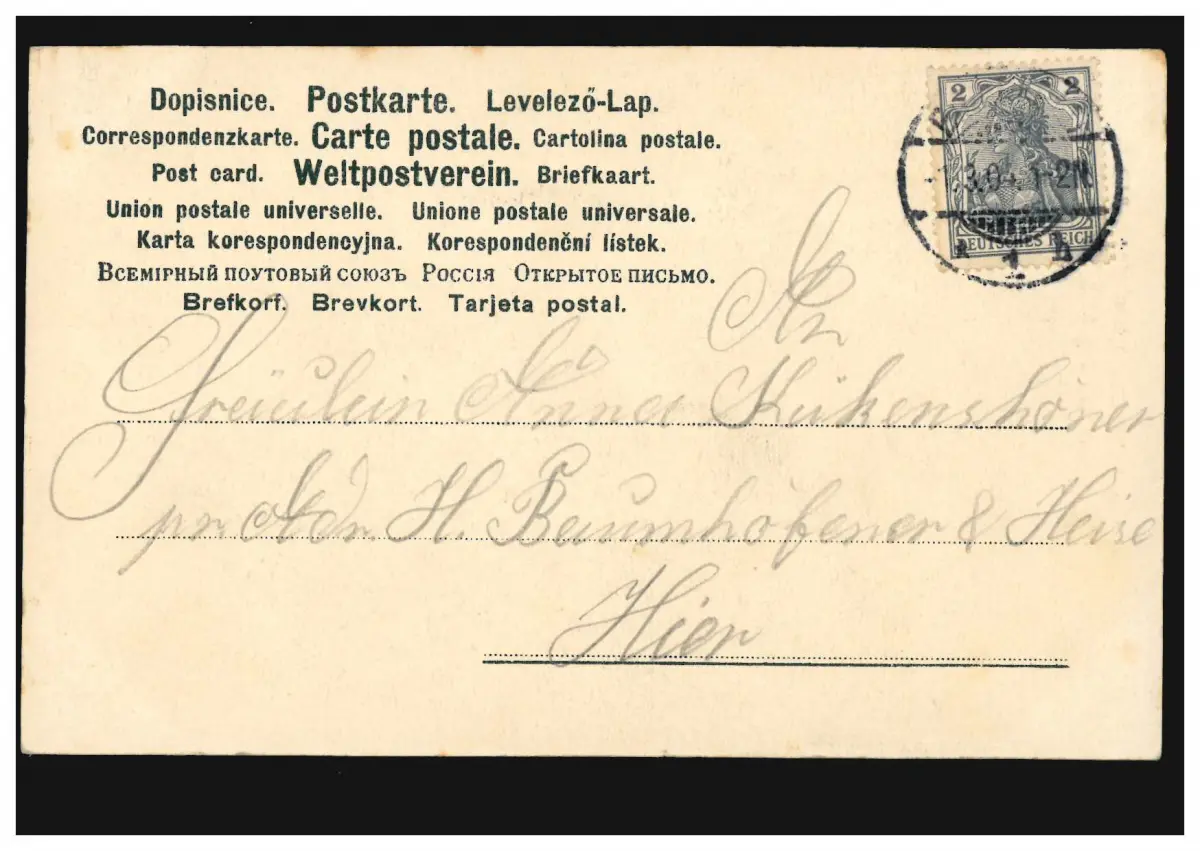 Dopisnice. Postkarte. Levelező-Lap.
Correspondenzkarte. Carte postale. Cartolina postale.
Post card. Weltpostverein. Briefkaart.
Union postale universelle. Unione postale universale.
Karta korespondencyjna. Korespondenční lístek.
Всемірный поутовый союзъ Россія Открытое письмо.
Brefkorf. Brevkort. Tarjeta postal.
2 2
DEUTSCHES REICH
1-2N
1
An
Fräulein Anna Kükenshöner
pr. Adr. H. Baumhöfener & Heise
Hier